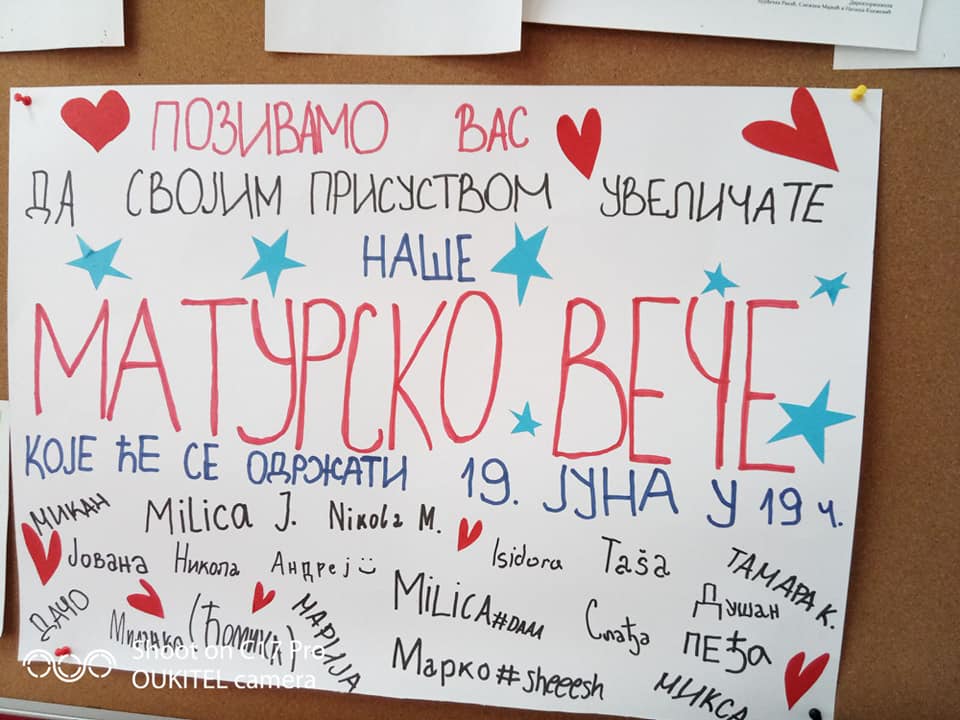 ПОЗИВАМО ВАС
ДА СВОЈИМ ПРИСУСТВОМ УВЕЛИЧАТЕ
НАШЕ
МАТУРСКО ВЕЧЕ
КОЈЕ ЋЕ СЕ ОДРЖАТИ 19. ЈУНА У 19 Ч.
МИКАН MiLica J. Nikola M.
Јована Никола Андреј Isidora Taša ТАМАРА К.
ДАЧО МАРИЈА MiLiCA#DAM Слађа Душан
Марко#sheeesh ПЕЂа МИКСА
Shoot on C17 Pro
OUKITEL camera